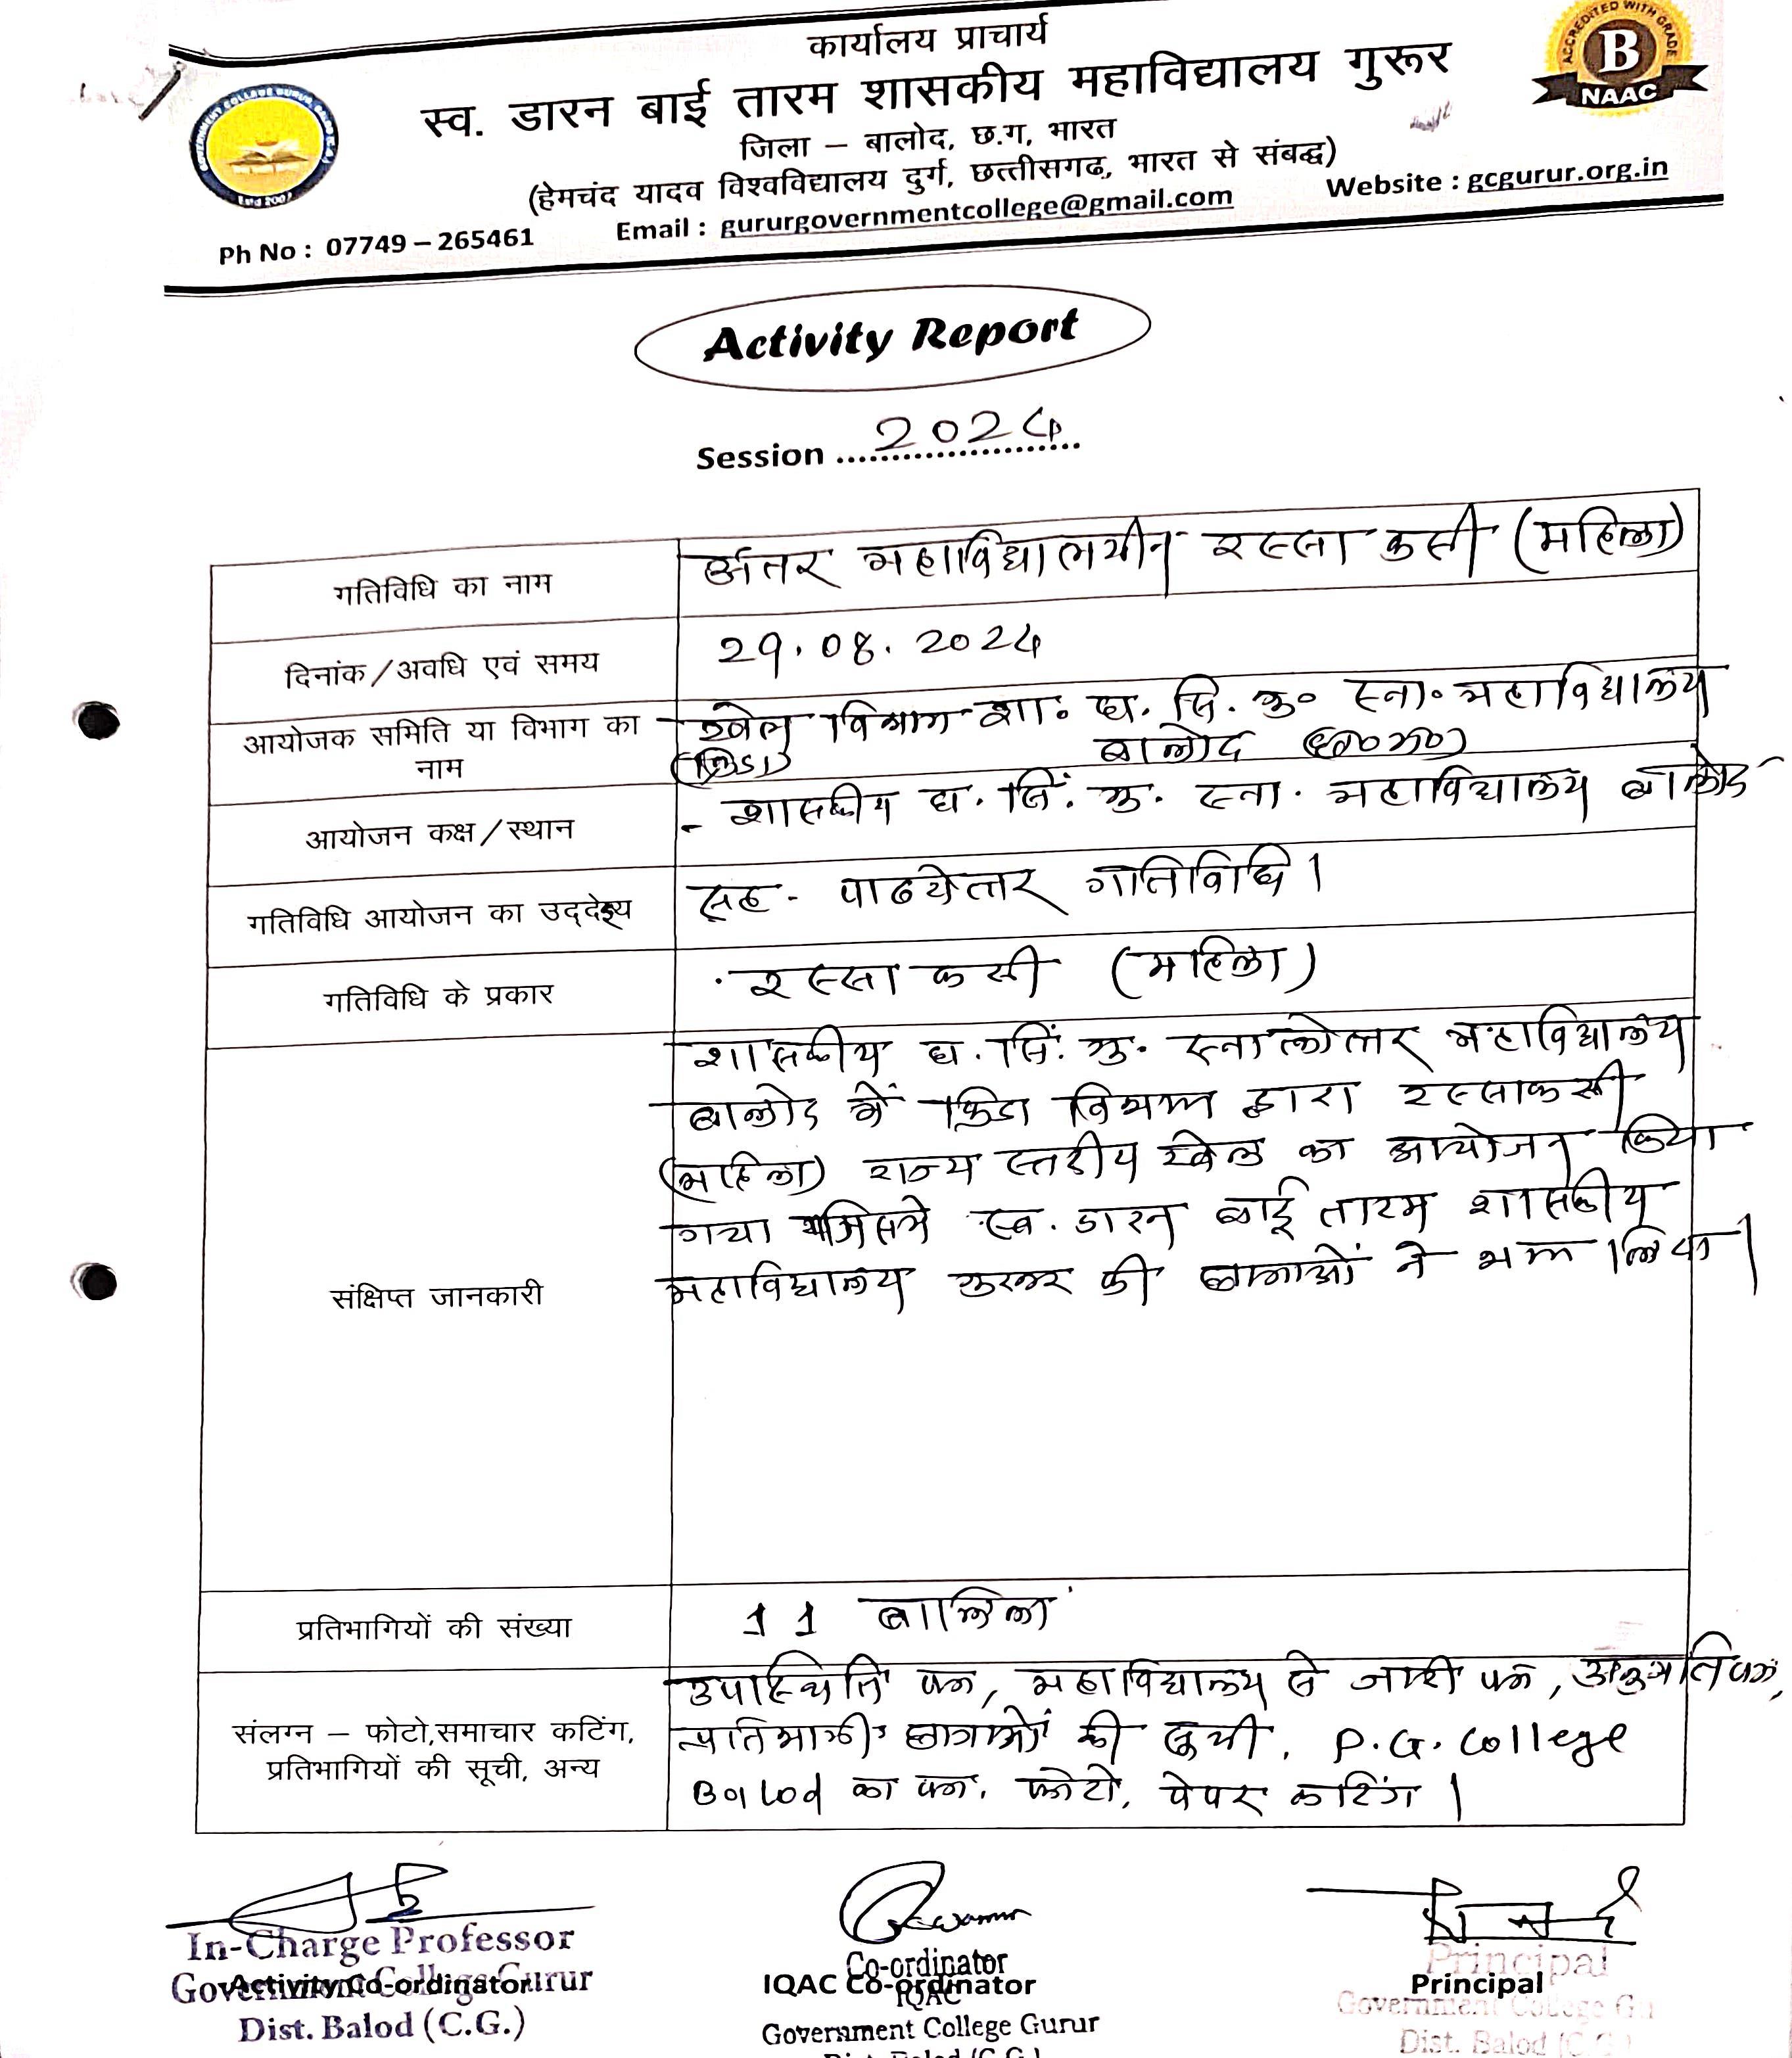 कार्यालय प्राचार्य
स्व. डारन बाई तारम शासकीय महाविद्यालय गुरूर
जिला – बालोद, छ.ग, भारत
(हेमचंद यादव विश्वविद्यालय दुर्ग, छत्तीसगढ, भारत से संबद्ध)
Ph No : 07749 – 265461 Email : gururgovernmentcollege@gmail.com Website : gcgurur.org.in
ACCREDITED WITH GRADE
B
NAAC
Activity Report
Session ....2024....
गतिविधि का नाम अंतर महाविद्यालयीन रस्सा कसी (महिला)
दिनांक/अवधि एवं समय 29.08.2024
आयोजक समिति या विभाग का खेल विभाग शा. घ. सि. गु० स्ना० महाविद्यालय
नाम (क्रिडा) बालोद (छ०ग०)
आयोजन कक्ष/स्थान - शासकीय घ. सिं. गु. स्ना. महाविद्यालय बालोद
गतिविधि आयोजन का उद्देश्य सह - पाठयेत्तर गतिविधि।
गतिविधि के प्रकार रस्सा कसी (महिला)
संक्षिप्त जानकारी
शासकीय घ. सिं. गु. स्नातकोत्तर महाविद्यालय
बालोद में क्रिडा विभाग द्वारा रस्साकसी
(महिला) राज्य स्तरीय खेल का आयोजन किया
गया जिसमे स्व. डारन बाई तारम शासकीय
महाविद्यालय गुरूर की ने भाग लिया।
प्रतिभागियों की संख्या 11
संलग्न – फोटो,समाचार कटिंग,
प्रतिभागियों की सूची, अन्य
उपस्थिति पत्र, महाविद्यालय से जारी पत्र, अनुमति पत्र,
प्रतिभागी छात्राओं की सूची, P.G. College
Balod का पत्र, फोटो, पेपर कटिंग।
In-Charge Professor
Government College Gurur
Activity Co-ordinator
Dist. Balod (C.G.)
Co-ordinator
IQAC Co-ordinator
IQAC
Government College Gurur
Principal
Principal
Government College Gu
Dist. Balod (C.G.)